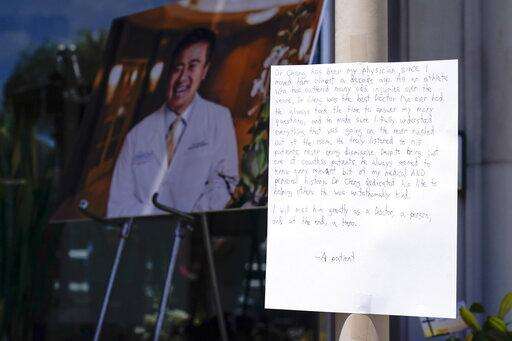 Dr Cheng has been my physician SINCE I
moved here almost a decade ago. As an athlete
who has suffered many injuries over the
years, Dr. Cheng was the best Doctor I've ever had.
He always took the time to answer my many
questions, and to make sure I fully understood
everything that was going on. He never rushed
out of the room. He truly listened to his
patients, never being dismissive. Despite being just
one of countless patients, he always seemed to
know every relevant bit of my medical AND
personal history. Dr Cheng dedicated his life to
helping others. He was unfathomably kind.
I will miss him greatly as a Doctor, a person,
and at the end, a hero.
-A patient